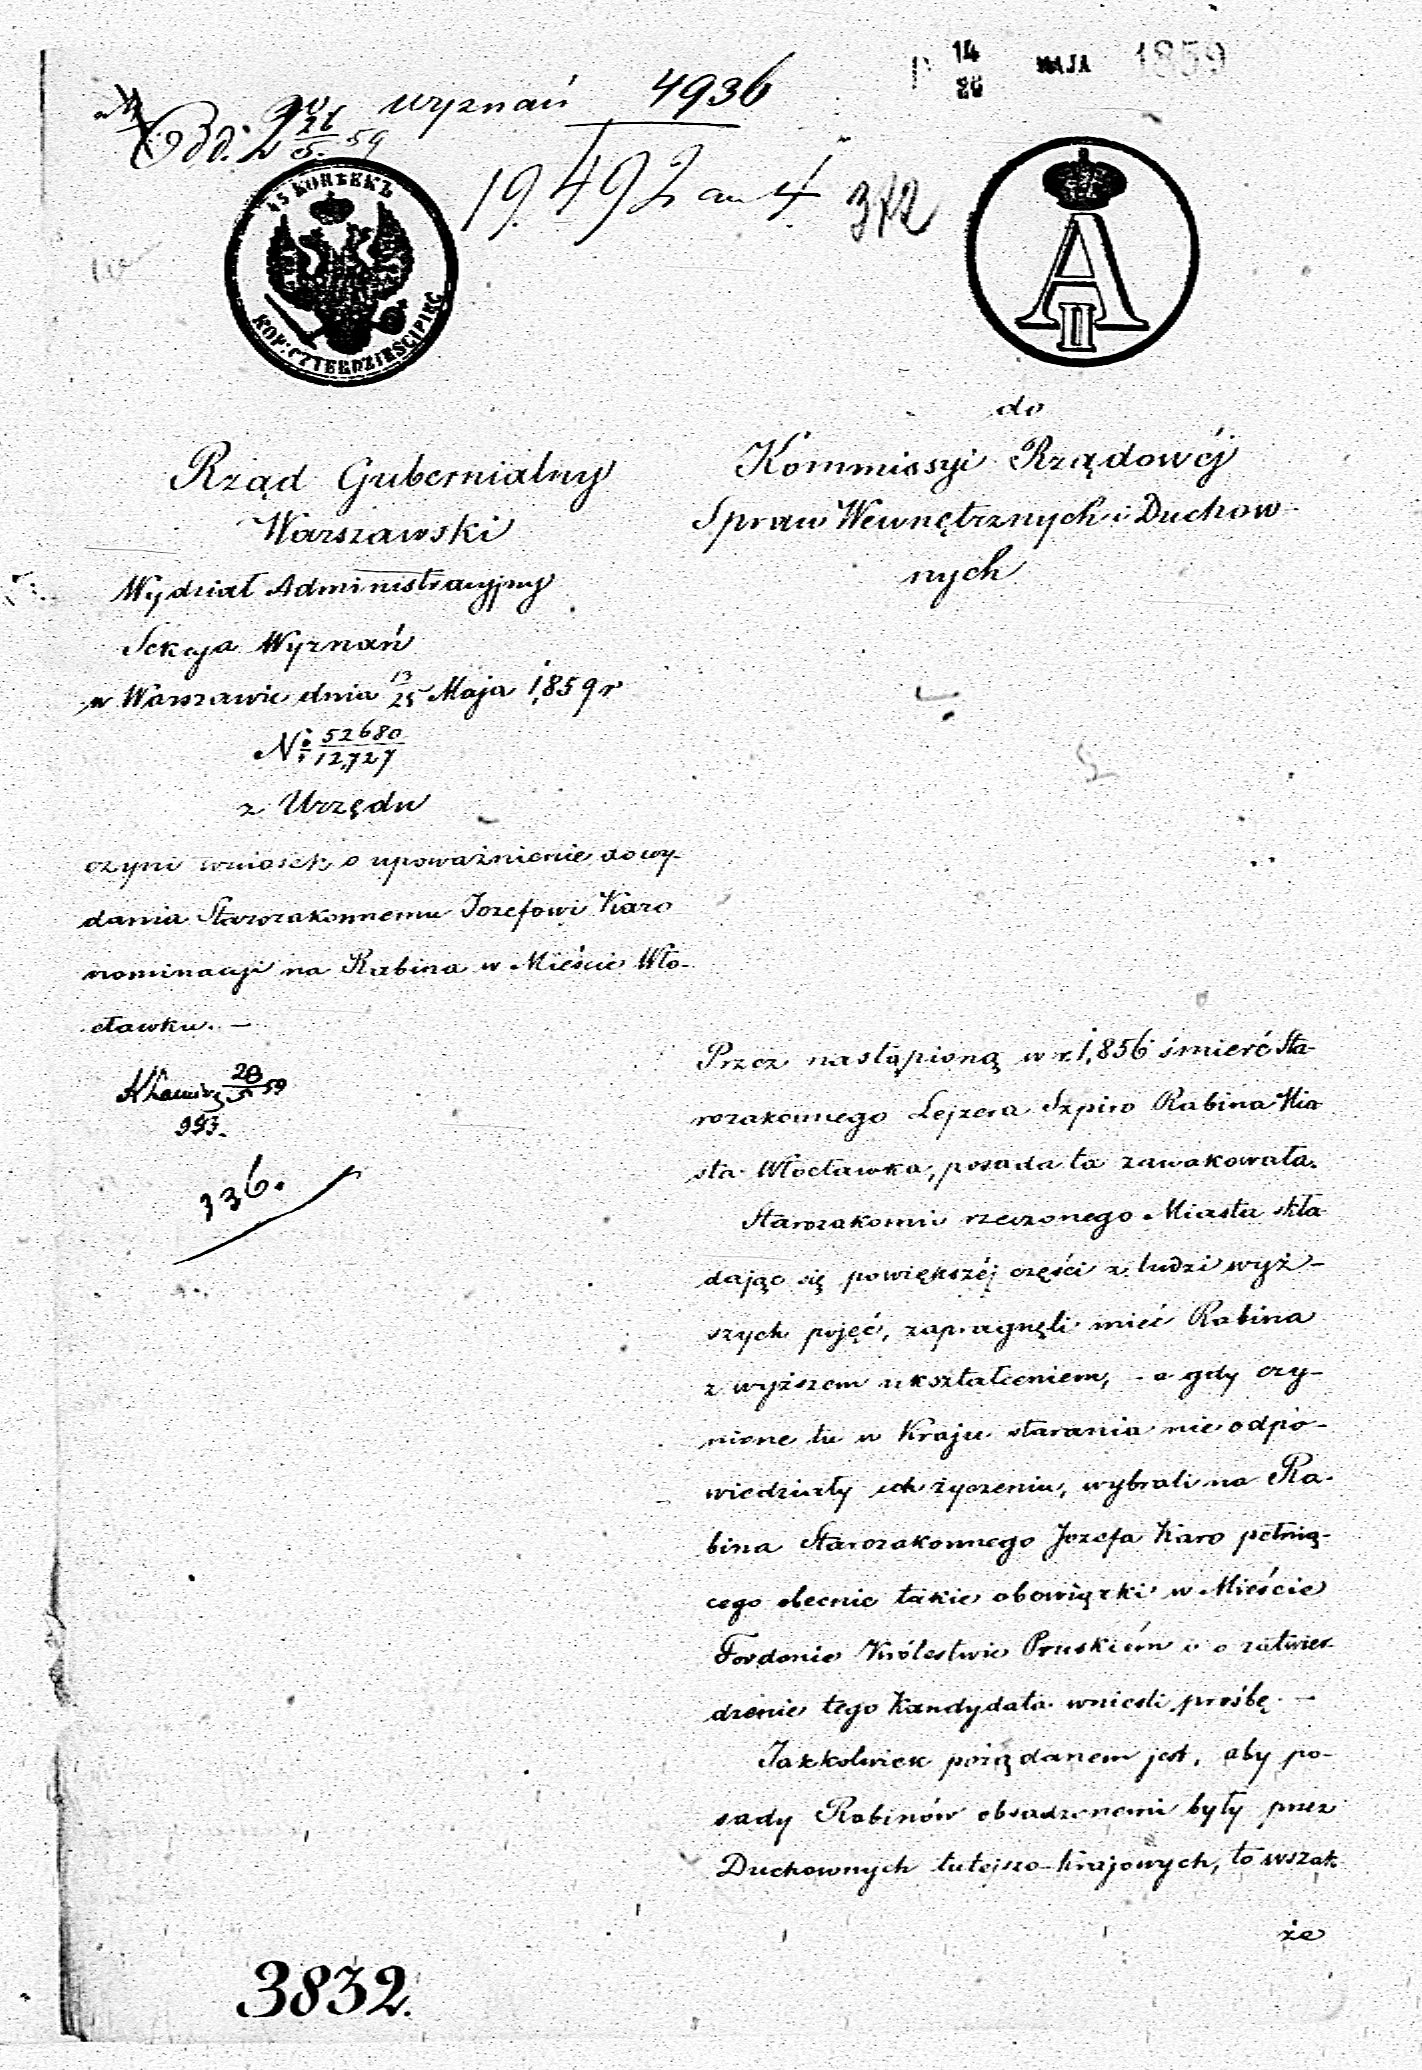 14
26 MAJA 1859
wyznań 4936
19.492 an 4
45 КОПѢЕКЪ
KOP: CZTERDZIEŚCI PIĘĆ
A II
Rząd Gubernialny
Warszawski
Wydział Administracyjny
Sekcya Wyznań
w Warszawie dnia 13/25 Maja 1859 r
No 52680/12727
z Urzędu
czyni wniosek o upoważnienie do wy-
dania Starozakonnemu Jozefowi Karo
nominacyi na Rabina w Mieście Wło-
cławku. —
28/5 59
993.
336.
do
Kommissyi Rządowéj
Spraw Wewnętrznych i Duchow-
nych
Przez nastąpioną w r. 1856 śmierć Sta-
rozakonnego Lejzera Szpiro Rabina Mia
sta Włocławka, posada ta zawakowała.
Starozakonni rzeczonego Miasta skła
dając się powiększéj części z ludzi wyż-
szych pojęć, zapragnęli mieć Rabina
z wyższem ukształceniem, - a gdy czy-
nione tu w Kraju starania nie odpo-
wiedziały ich życzeniu, wybrali na Ra-
bina Starozakonnego Jozefa Karo pełnią-
cego obecnie takie obowiązki w Mieście
Fordonie Królestwie Pruskiém i o zatwier-
dzenie tego Kandydata wnieśli prośbę. —
Jakkolwiek pożądanem jest, aby po-
sady Rabinów obsadzonemi były przez
Duchownych tutejszo-krajowych, to wszak-
że
3832.